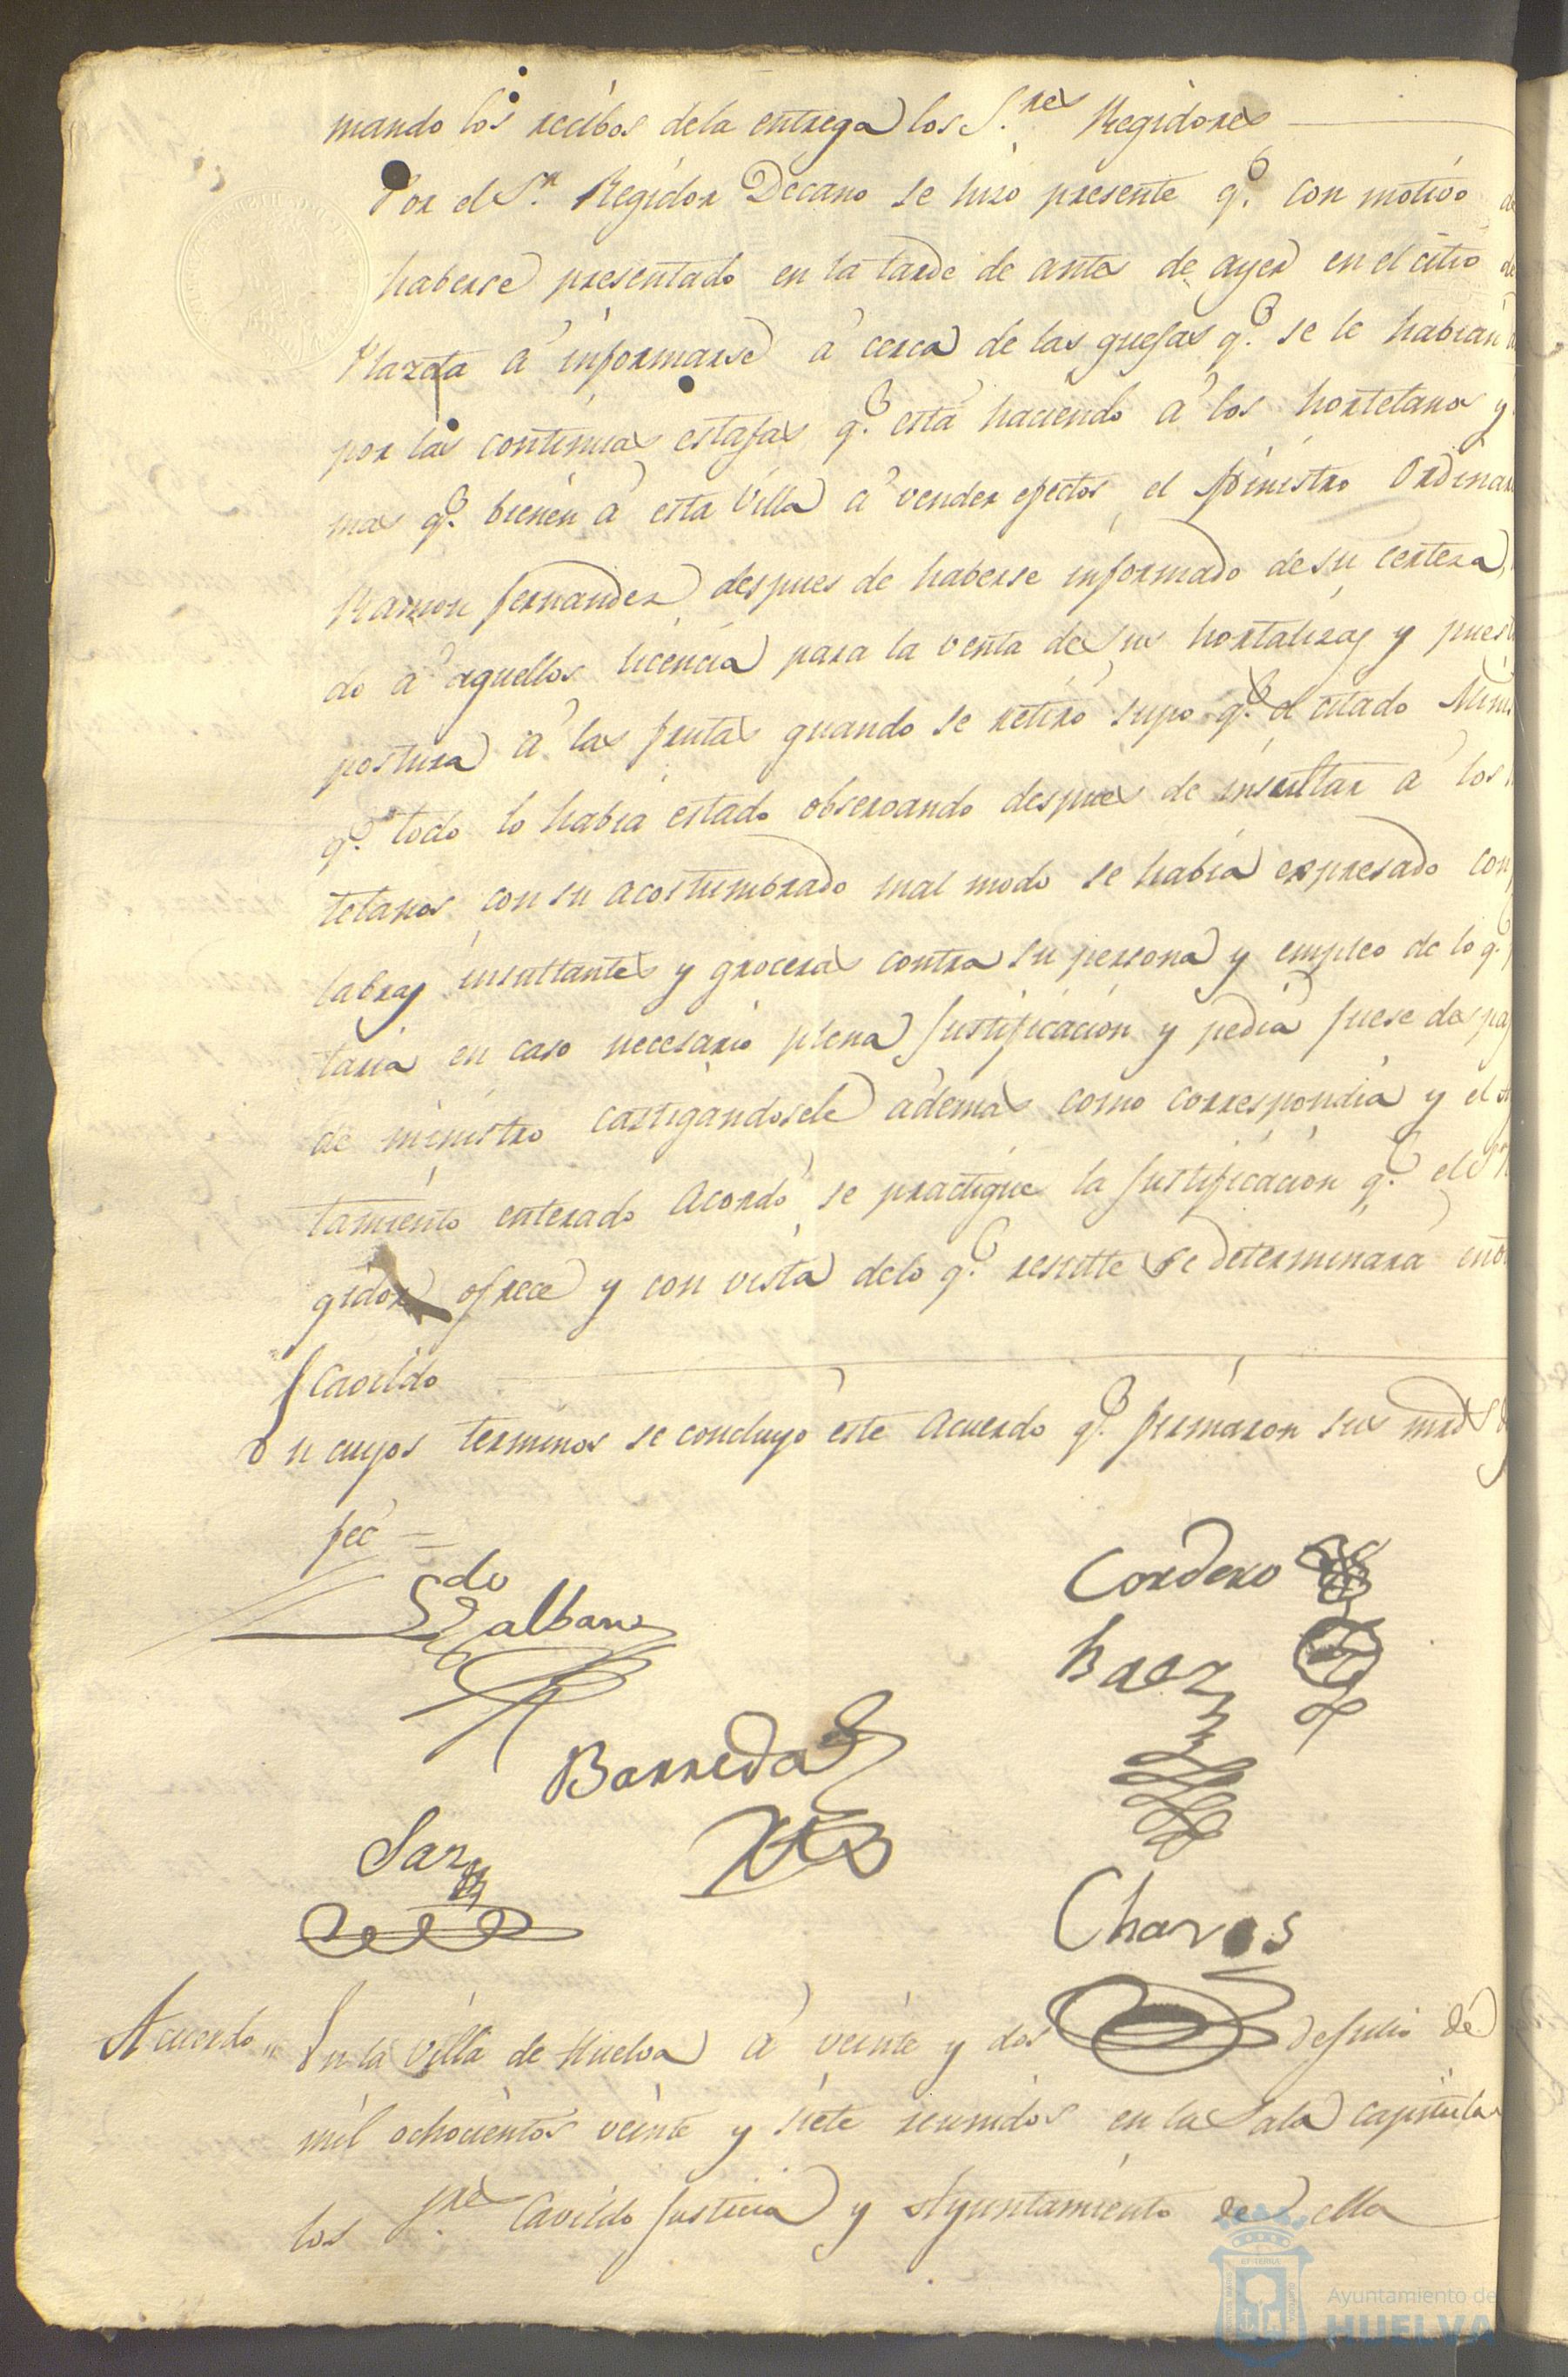 mando los recibos dela entrega los S.res Regidores
Por el S.r Regidor Decano se hizo presente q.e con motivo de
haberse presentado en la tarde de antes de ayer en el citio de
Plazeta á informarse á cerca de las quejas q.e se le habian
por las continuas estafas q.e está haciendo á los hortelanos y
mas q.e bienen á esta Villa á vender efectos el Ministro Ordinar
Ramon Fernandez despues de haberse informado de su certeza,
do á aquellos licencia para la venta de sus hortalizas y puest
postura á las frutas quando se retiró supo q.e el citado Minis
q.e todo lo habia estado observando despues de insultar á los
telanos con su acostumbrado mal modo se habia expresado con
labras insultantes y groceras contra su persona y empleo de lo q.e
taria en caso necesario plena Justificacion y pedia fuese despa
de ministro castigandosele ademas como correspondia y el
tamiento enterado Acordó se practique la Justificacion q.e el S.r
gidor ofrece y con vista delo q.e resulte se determinará en
Cavildo
En cuyos terminos se concluyó este Acuerdo q.e firmaron sus mrds
feé =
Cordero
Baez
Barreda
Saz
Chaves
Acuerdo En la Villa de Huelva á veinte y dos de Julio de
mil ochocientos veinte y siete reunidos en la Sala capitular
los Sres Cavildo Justicia y Ayuntamiento de ella
Ayuntamiento de
HUELVA